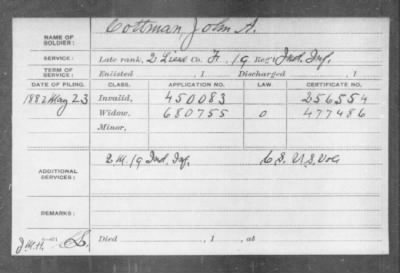 NAME OF SOLDIER: Cottman, John A.
SERVICE: Late rank, 2 Lieu Co. F, 19 Reg't Ind. Inf.
TERM OF SERVICE: Enlisted , 1 Discharged , 1
DATE OF FILING. CLASS. APPLICATION NO. LAW CERTIFICATE NO.
1882 May 23 Invalid, 450083 256554
Widow, 680755 O 477486
Minor,
ADDITIONAL SERVICES: 2 M. 19 Ind. Inf. C.S. U.S. Vols
REMARKS:
Died , 1 , at